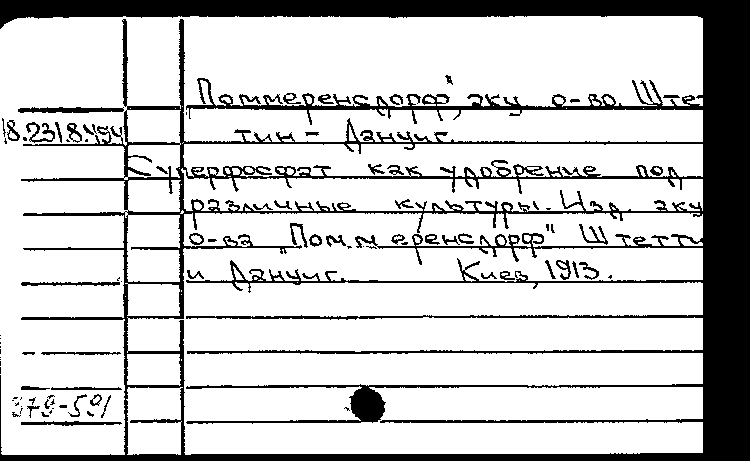 "Поммеренсдорф", акц о-во. Штет-
18.231.8.494
тин - Данциг.
Суперфосфат как удобрение под
различные культуры. Изд. акц
о-ва "Поммеренсдорф" Штетти
и Данциг. Киев, 1913.
379-591